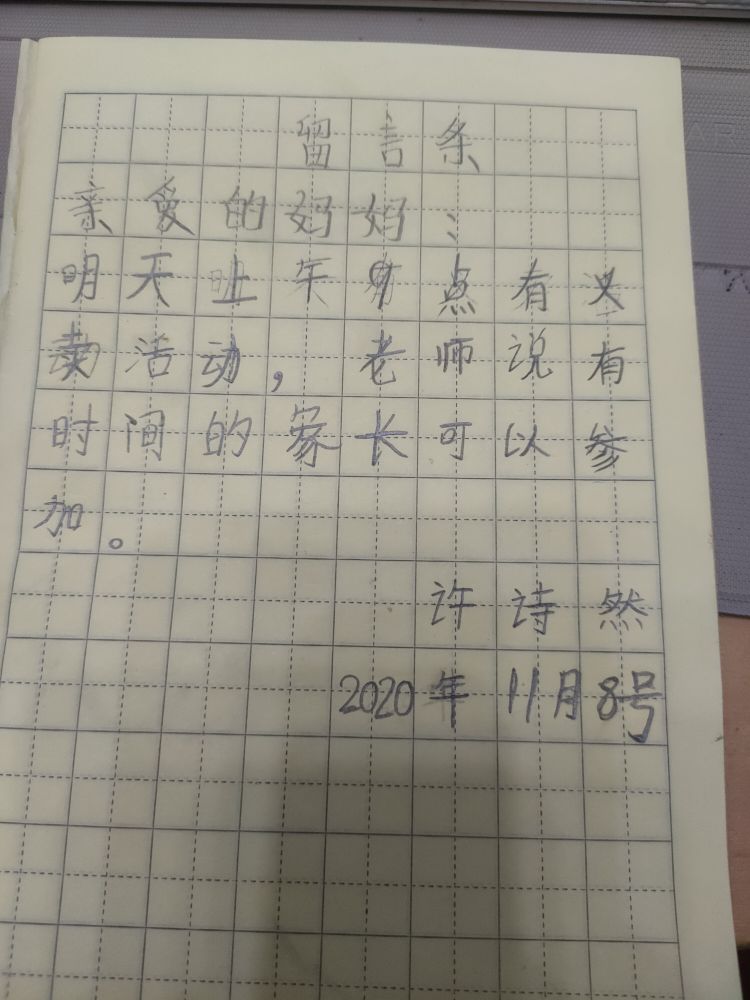 留言条
亲爱的妈妈：
明天上午9点有义
卖活动，老师说有
时间的家长可以参
加。
许诗然
2020年11月8号